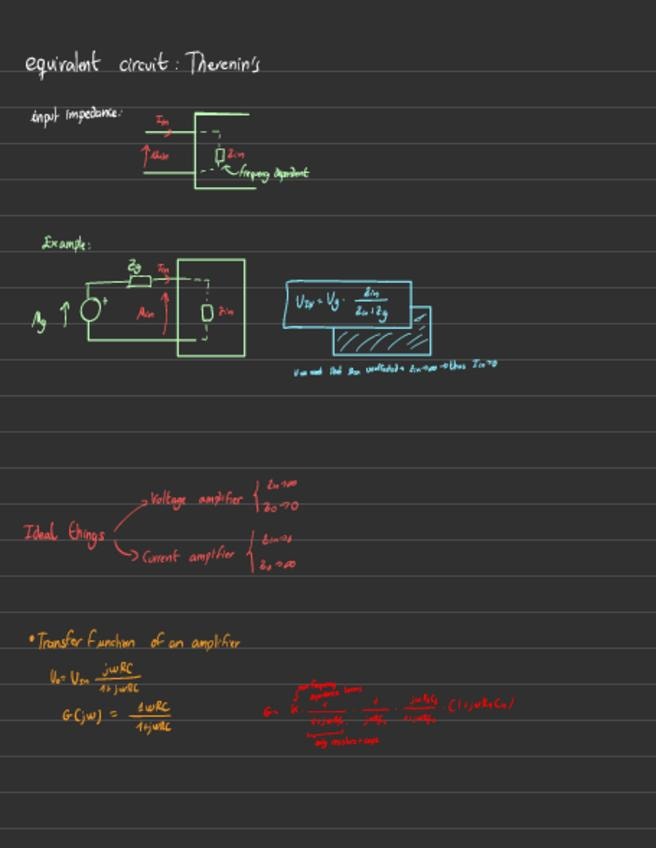 equivalent circuit: Thevenin's
input impedance:
Iin
Zin
frequency dependent
Example:
Zg
Iin
Zin
UIN = Vg · Zin / Zin + Zg
Zin→∞ → thus Iin→0
Ideal things
Voltage amplifier { Zin→∞
Zo→0
Current amplifier { Zin→0
Zo→∞
• Transfer function of an amplifier
Uo = UIn jωRC / 1+jωRC
G(jω) = jωRC / 1+jωRC
G =